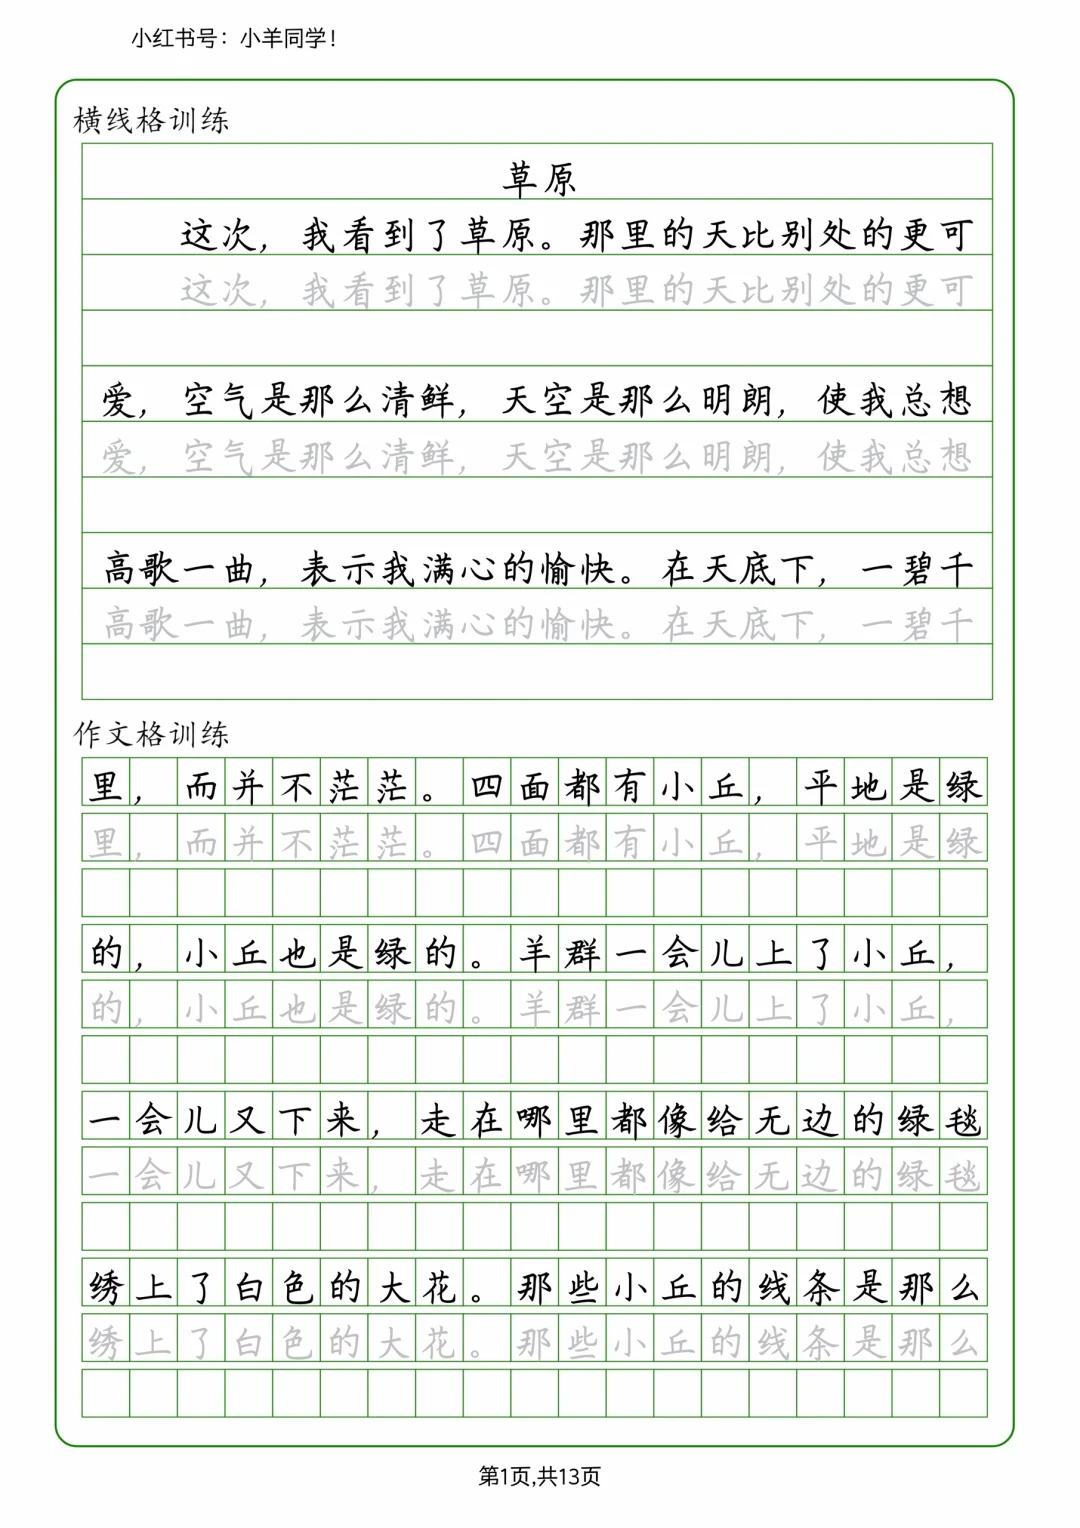 小红书号：小羊同学！
横线格训练
草原
这次，我看到了草原。那里的天比别处的更可
这次，我看到了草原。那里的天比别处的更可
爱，空气是那么清鲜，天空是那么明朗，使我总想
爱，空气是那么清鲜，天空是那么明朗，使我总想
高歌一曲，表示我满心的愉快。在天底下，一碧千
高歌一曲，表示我满心的愉快。在天底下，一碧千
作文格训练
里，而并不茫茫。四面都有小丘，平地是绿
里，而并不茫茫。四面都有小丘，平地是绿
的，小丘也是绿的。羊群一会儿上了小丘，
的，小丘也是绿的。羊群一会儿上了小丘，
一会儿又下来，走在哪里都像给无边的绿毯
一会儿又下来，走在哪里都像给无边的绿毯
绣上了白色的大花。那些小丘的线条是那么
绣上了白色的大花。那些小丘的线条是那么
第1页,共13页